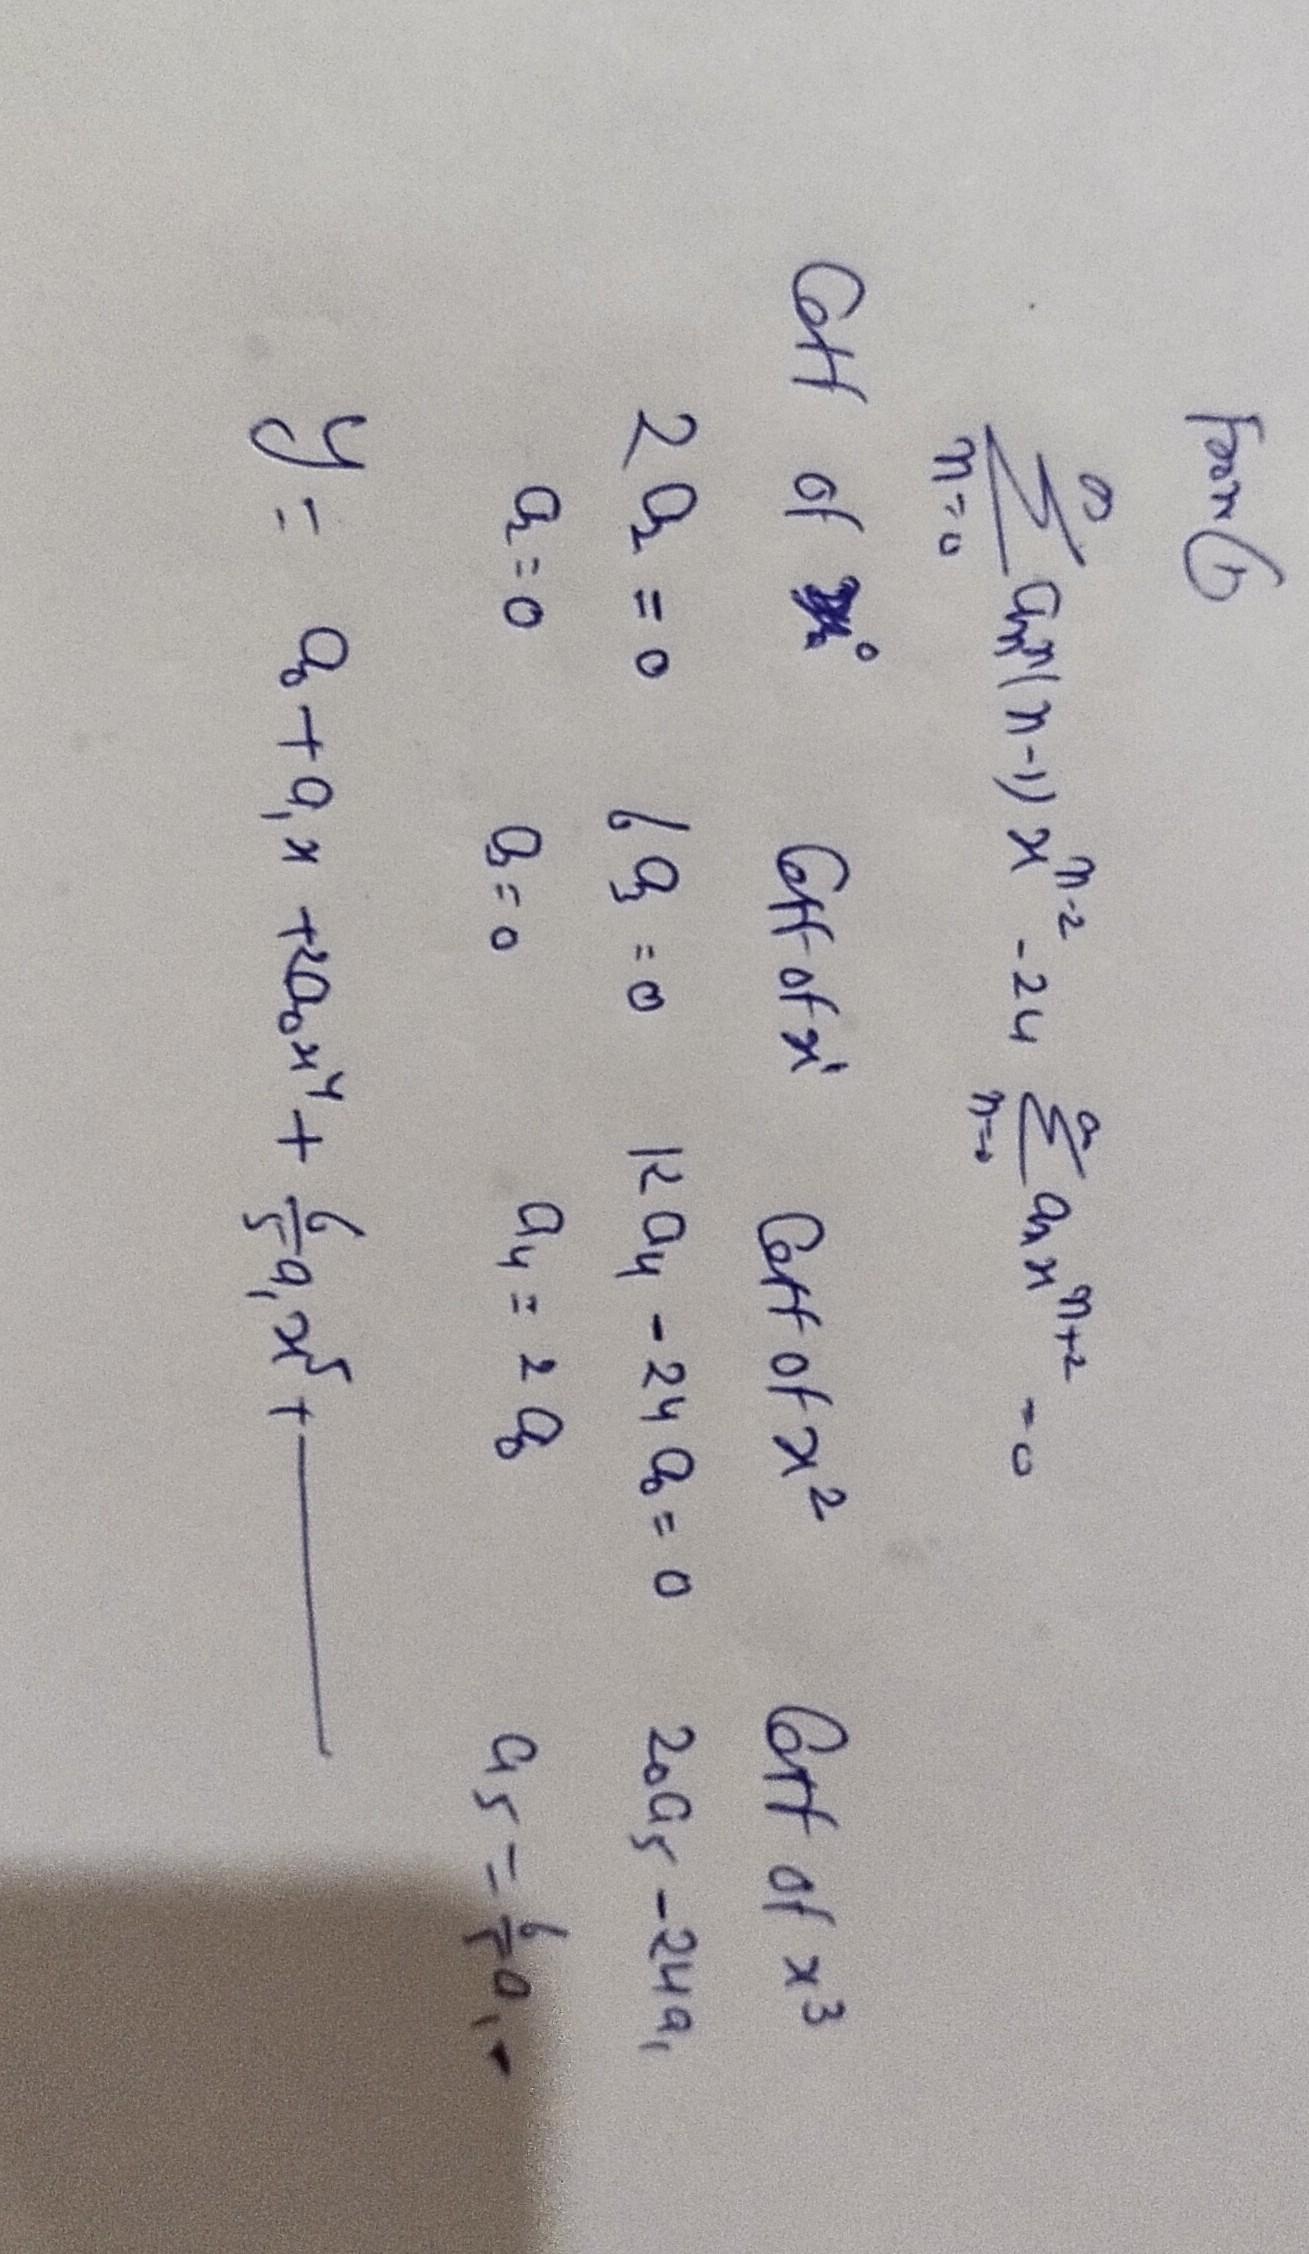 from (1)
∞ ∑ n=0 aₙ n(n-1) x^(n-2) - 24 ∞ ∑ n=0 aₙ x^(n+2) = 0
Coff of x⁰ Coff of x¹ Coff of x² Coff of x³
2a₂ = 0 6a₃ = 0 12a₄ - 24a₀ = 0 20a₅ - 24a₁
a₂ = 0 a₃ = 0 a₄ = 2a₀ a₅ = 6/5 a₁
y = a₀ + a₁x + 2a₀x⁴ + 6/5 a₁x⁵ +